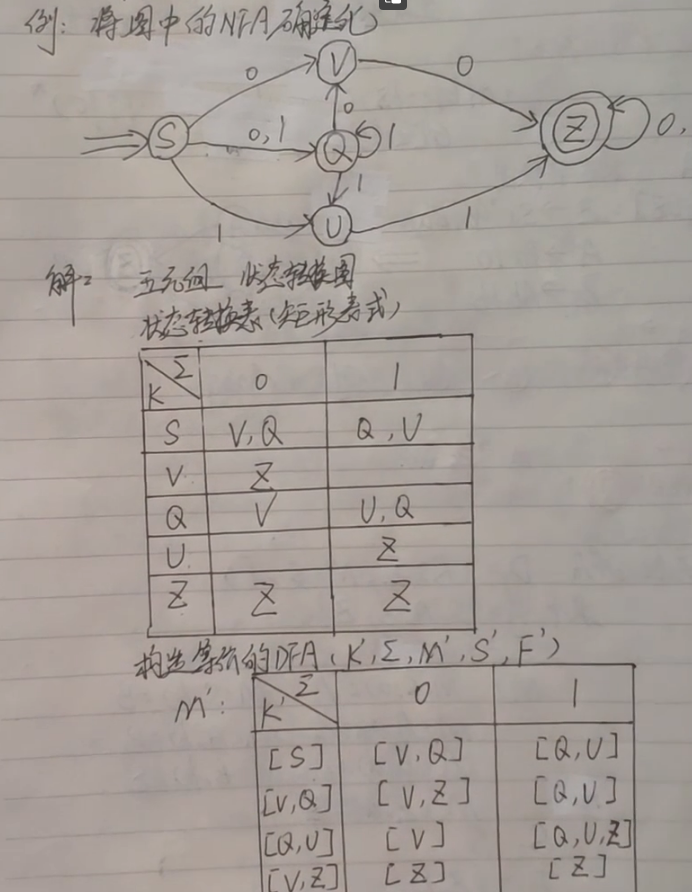 例：将图中的NFA确定化
V
0
0
S
0,1
0
Q
1
Z
0,
1
U
1
1
解： 五元组 状态转换图
状态转换表(矩形表式)
K Σ 0 1
S V,Q Q,U
V Z
Q V U,Q
U Z
Z Z Z
构造等价的DFA(K',Σ,M',S',F')
M': K' Σ 0 1
[S] [V,Q] [Q,U]
[V,Q] [V,Z] [Q,U]
[Q,U] [V] [Q,U,Z]
[V,Z] [Z] [Z]